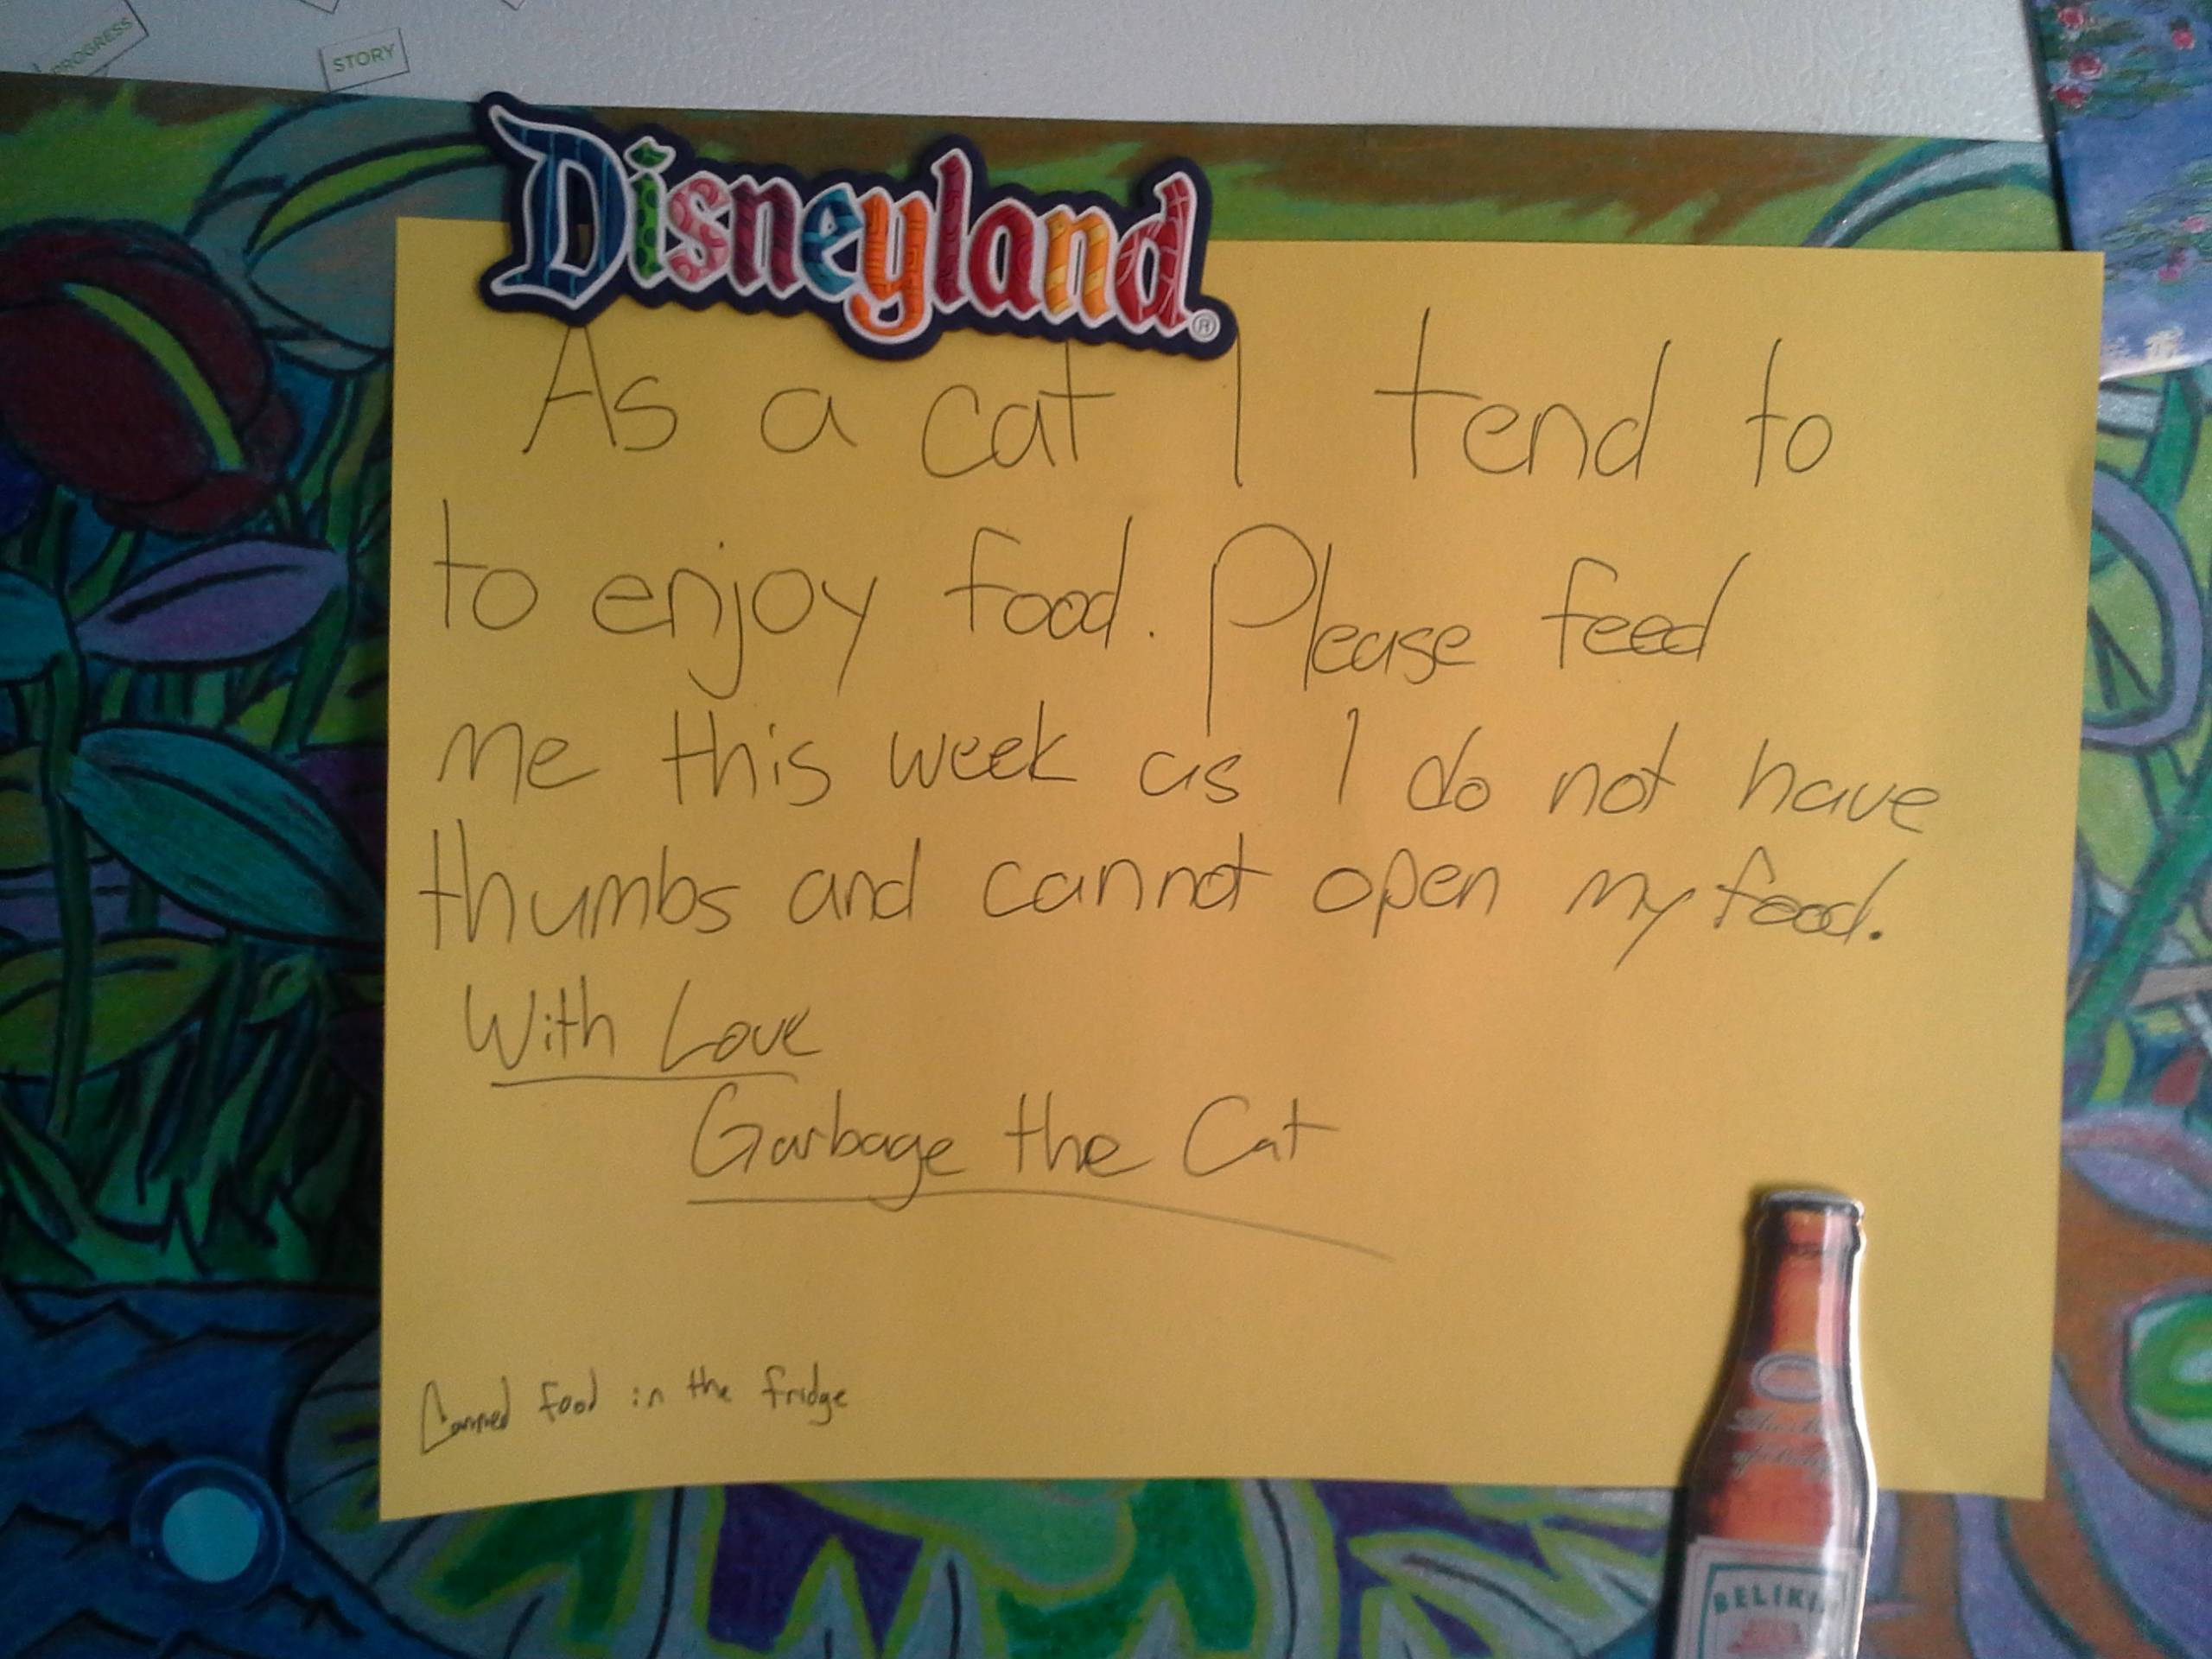 PROGRESS
STORY
Disneyland®
As a cat I tend to
to enjoy food. Please feed
me this week as I do not have
thumbs and cannot open my food.
With Love
Garbage the Cat
Canned food in the fridge